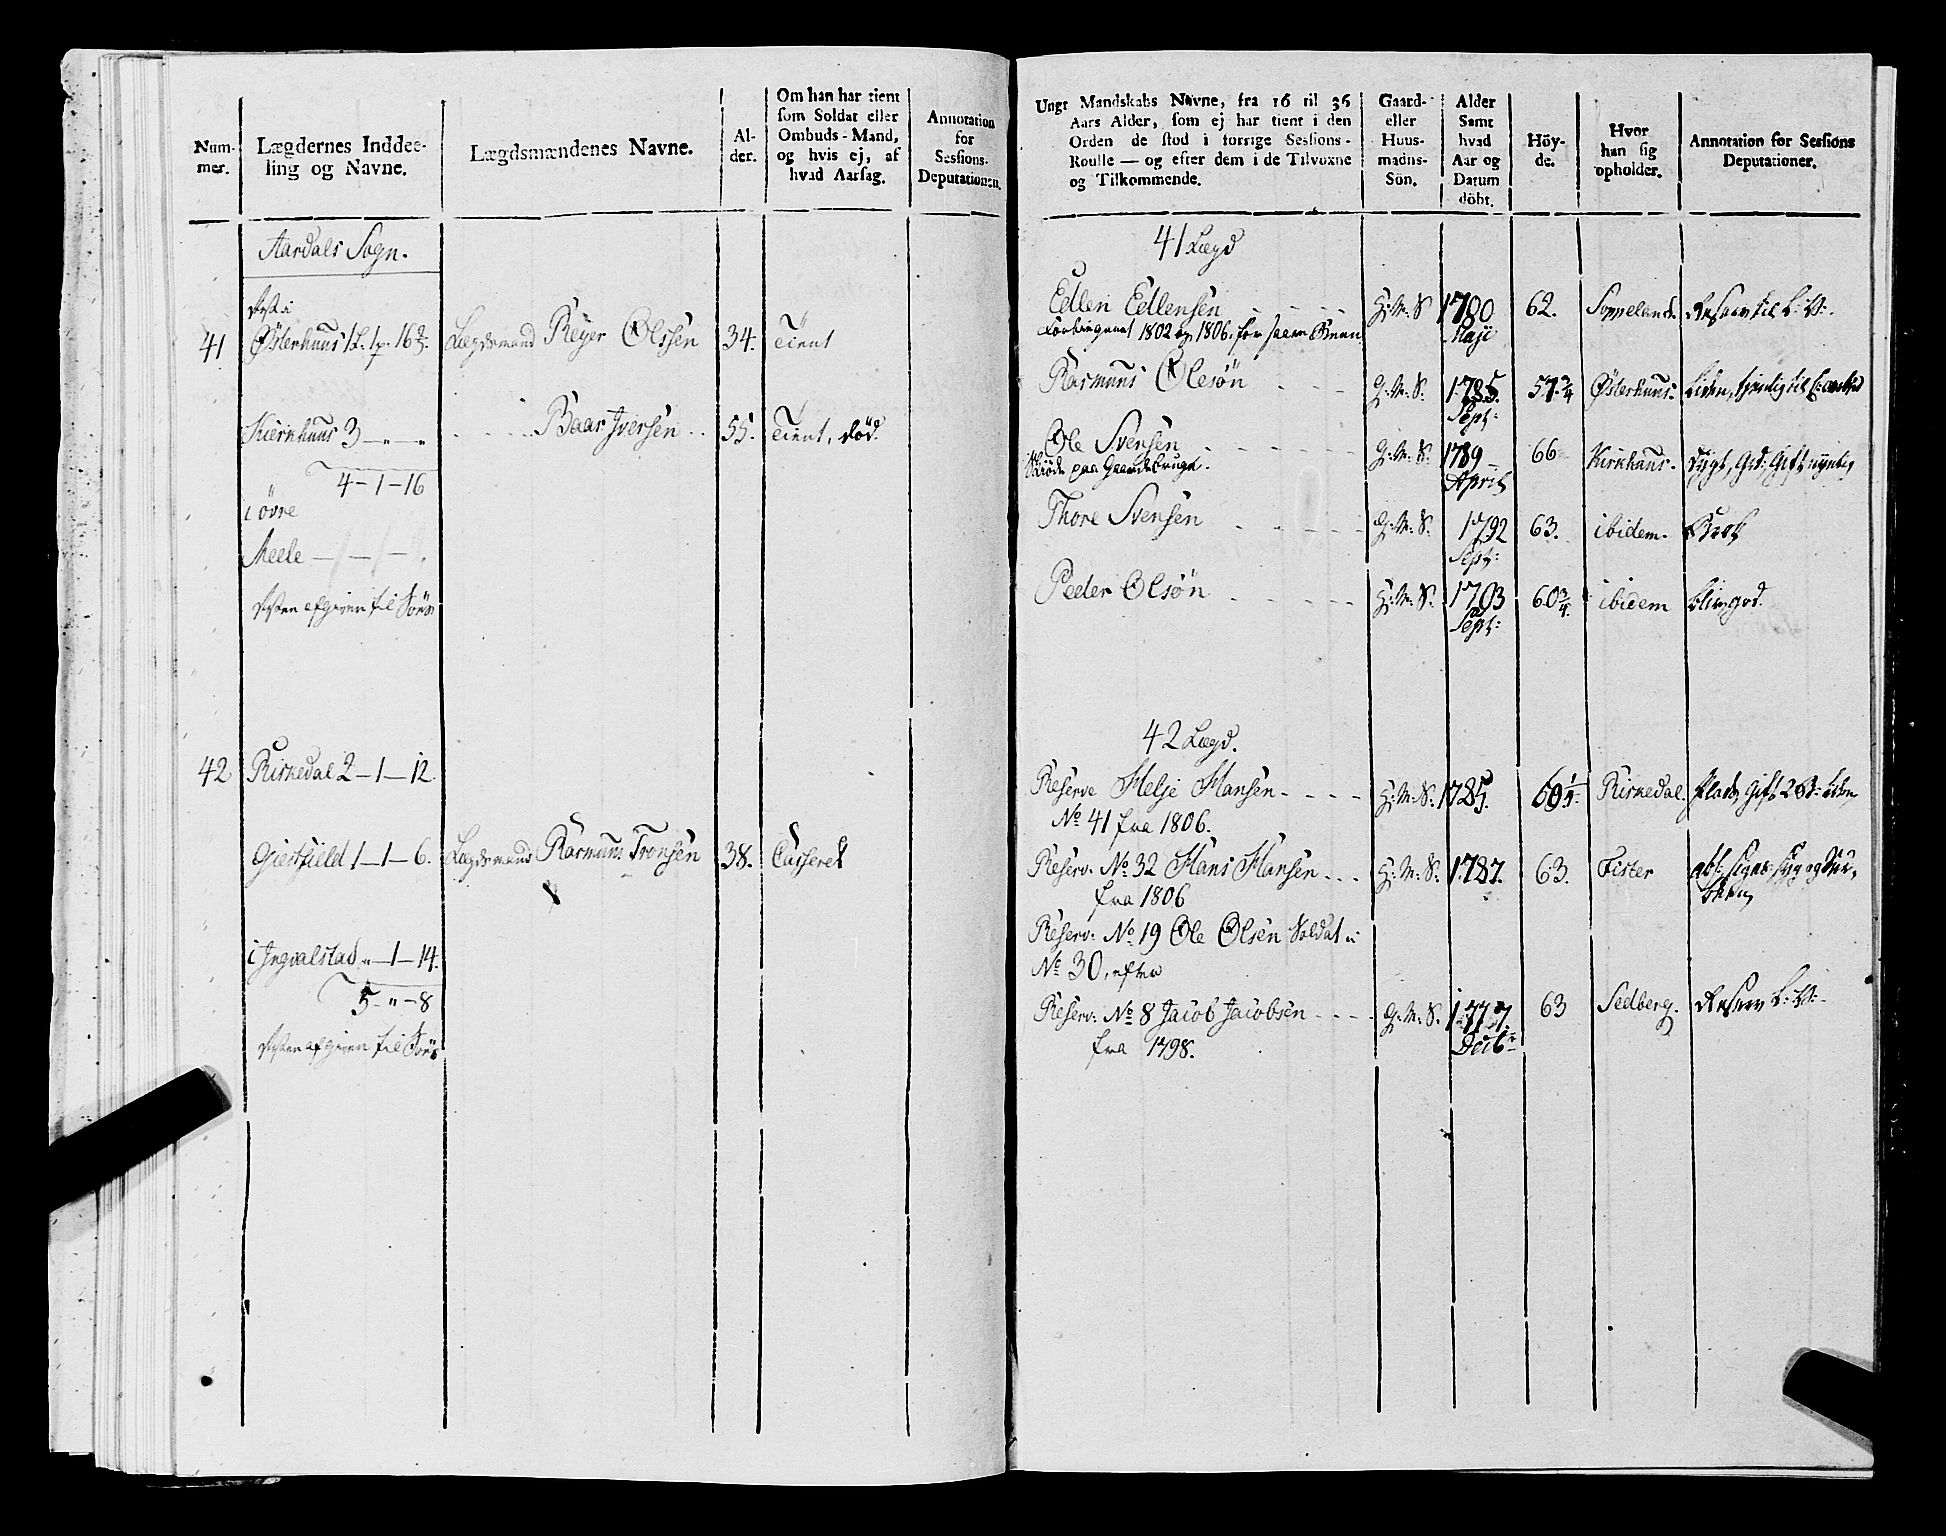 Num-
mer.
Lægdernes Inddee-
ling og Navne.
Lægdsmændenes Navne.
Al-
der.
Om han har tient
som Soldat eller
Ombuds-Mand,
og hvis ej, af
hvad Aarsag.
Annotation
for
Sessions-
Deputationen.
Aardals Sogn.
41
Østerhuus 1L. 1p. 16
Lægdsmand Reyer Olssen
34.
Tient
Kierkhuus 3 — " — "
Baar Iversen
55.
Tient, død.
4 — 1 — 16
i øvre
Meele
afgiven til
42
Riskedal 2 — 1 — 12
Giertfield 1 — 1 — 6.
Lægdsmand Rasmus Tronsen
38.
Casseret
i Ingvalstad " — 1 — 14.
5 — " — 8
afgiven til
Ungt Mandskabs Navne, fra 16 til 36
Aars Alder, som ej har tient i den
Orden de stod i forrige Sessions-
Roulle — og efter dem i de Tilvoxne
og Tilkommende.
Gaard-
eller
Huus-
mands-
Sön.
Alder
Samt
hvad
Aar og
Datum
döbt.
Höy-
de.
Hvor
han sig
opholder.
Annotation for Sessions
Deputationer.
41 Lægd
Edlen Edlensen
H: M: S
1780
Maji
62.
Soppeland.
Reserv til L: V:
1802 og 1806. for
Rasmus Olesøn
G: M: S.
1785.
Sept:
57 3/4
Østerhuus.
Liden, til
Ole Svensen
G: M: S.
1789
April
66
Kirkhuus.
Gift
paa Gaardsbruget.
Thore Svensen
G: M: S.
1792
Sept:
63.
ibidem.
Peder Olsøn
H: M: S.
Sept:
60 3/4
ibidem
god.
42 Lægd.
Reserve Helje Hansen
H: M: S.
1785.
Riskedal.
Gift
No 41 fra 1806.
Reserv: No 32 Hans Hansen
H: M: S.
1787.
63.
Fister
fra 1806
Reserv: No 19 Ole Olsen Soldat
No 30, efter
Reserv: No 8 Jacob Jacobsen
G: M: S.
1777.
63
Sedberg.
Reserv L: V:
fra 1798.